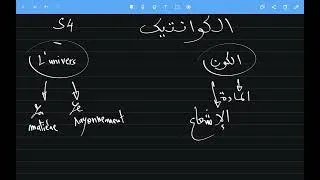 S4 الكوانتيك
L'univers الكون
المادة
La matière Le rayonnement الإشعاع